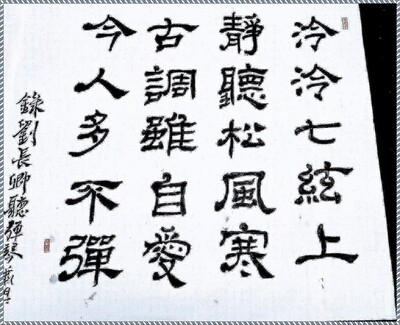 泠泠七絃上
靜聽松風寒
古調雖自愛
今人多不彈
錄劉長卿聽彈琴